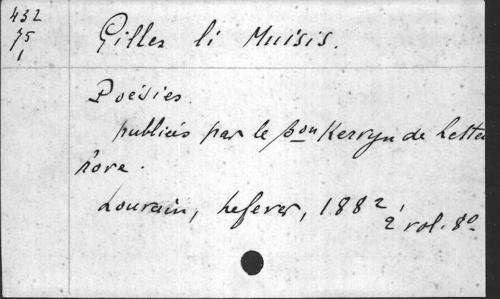 432
75
1
Gilles li Muisis.
Poésies.
publiées par le Bon Kervyn de Lette
n'hove.
Louvain, Lefever, 1882,
2 vol. 8o.